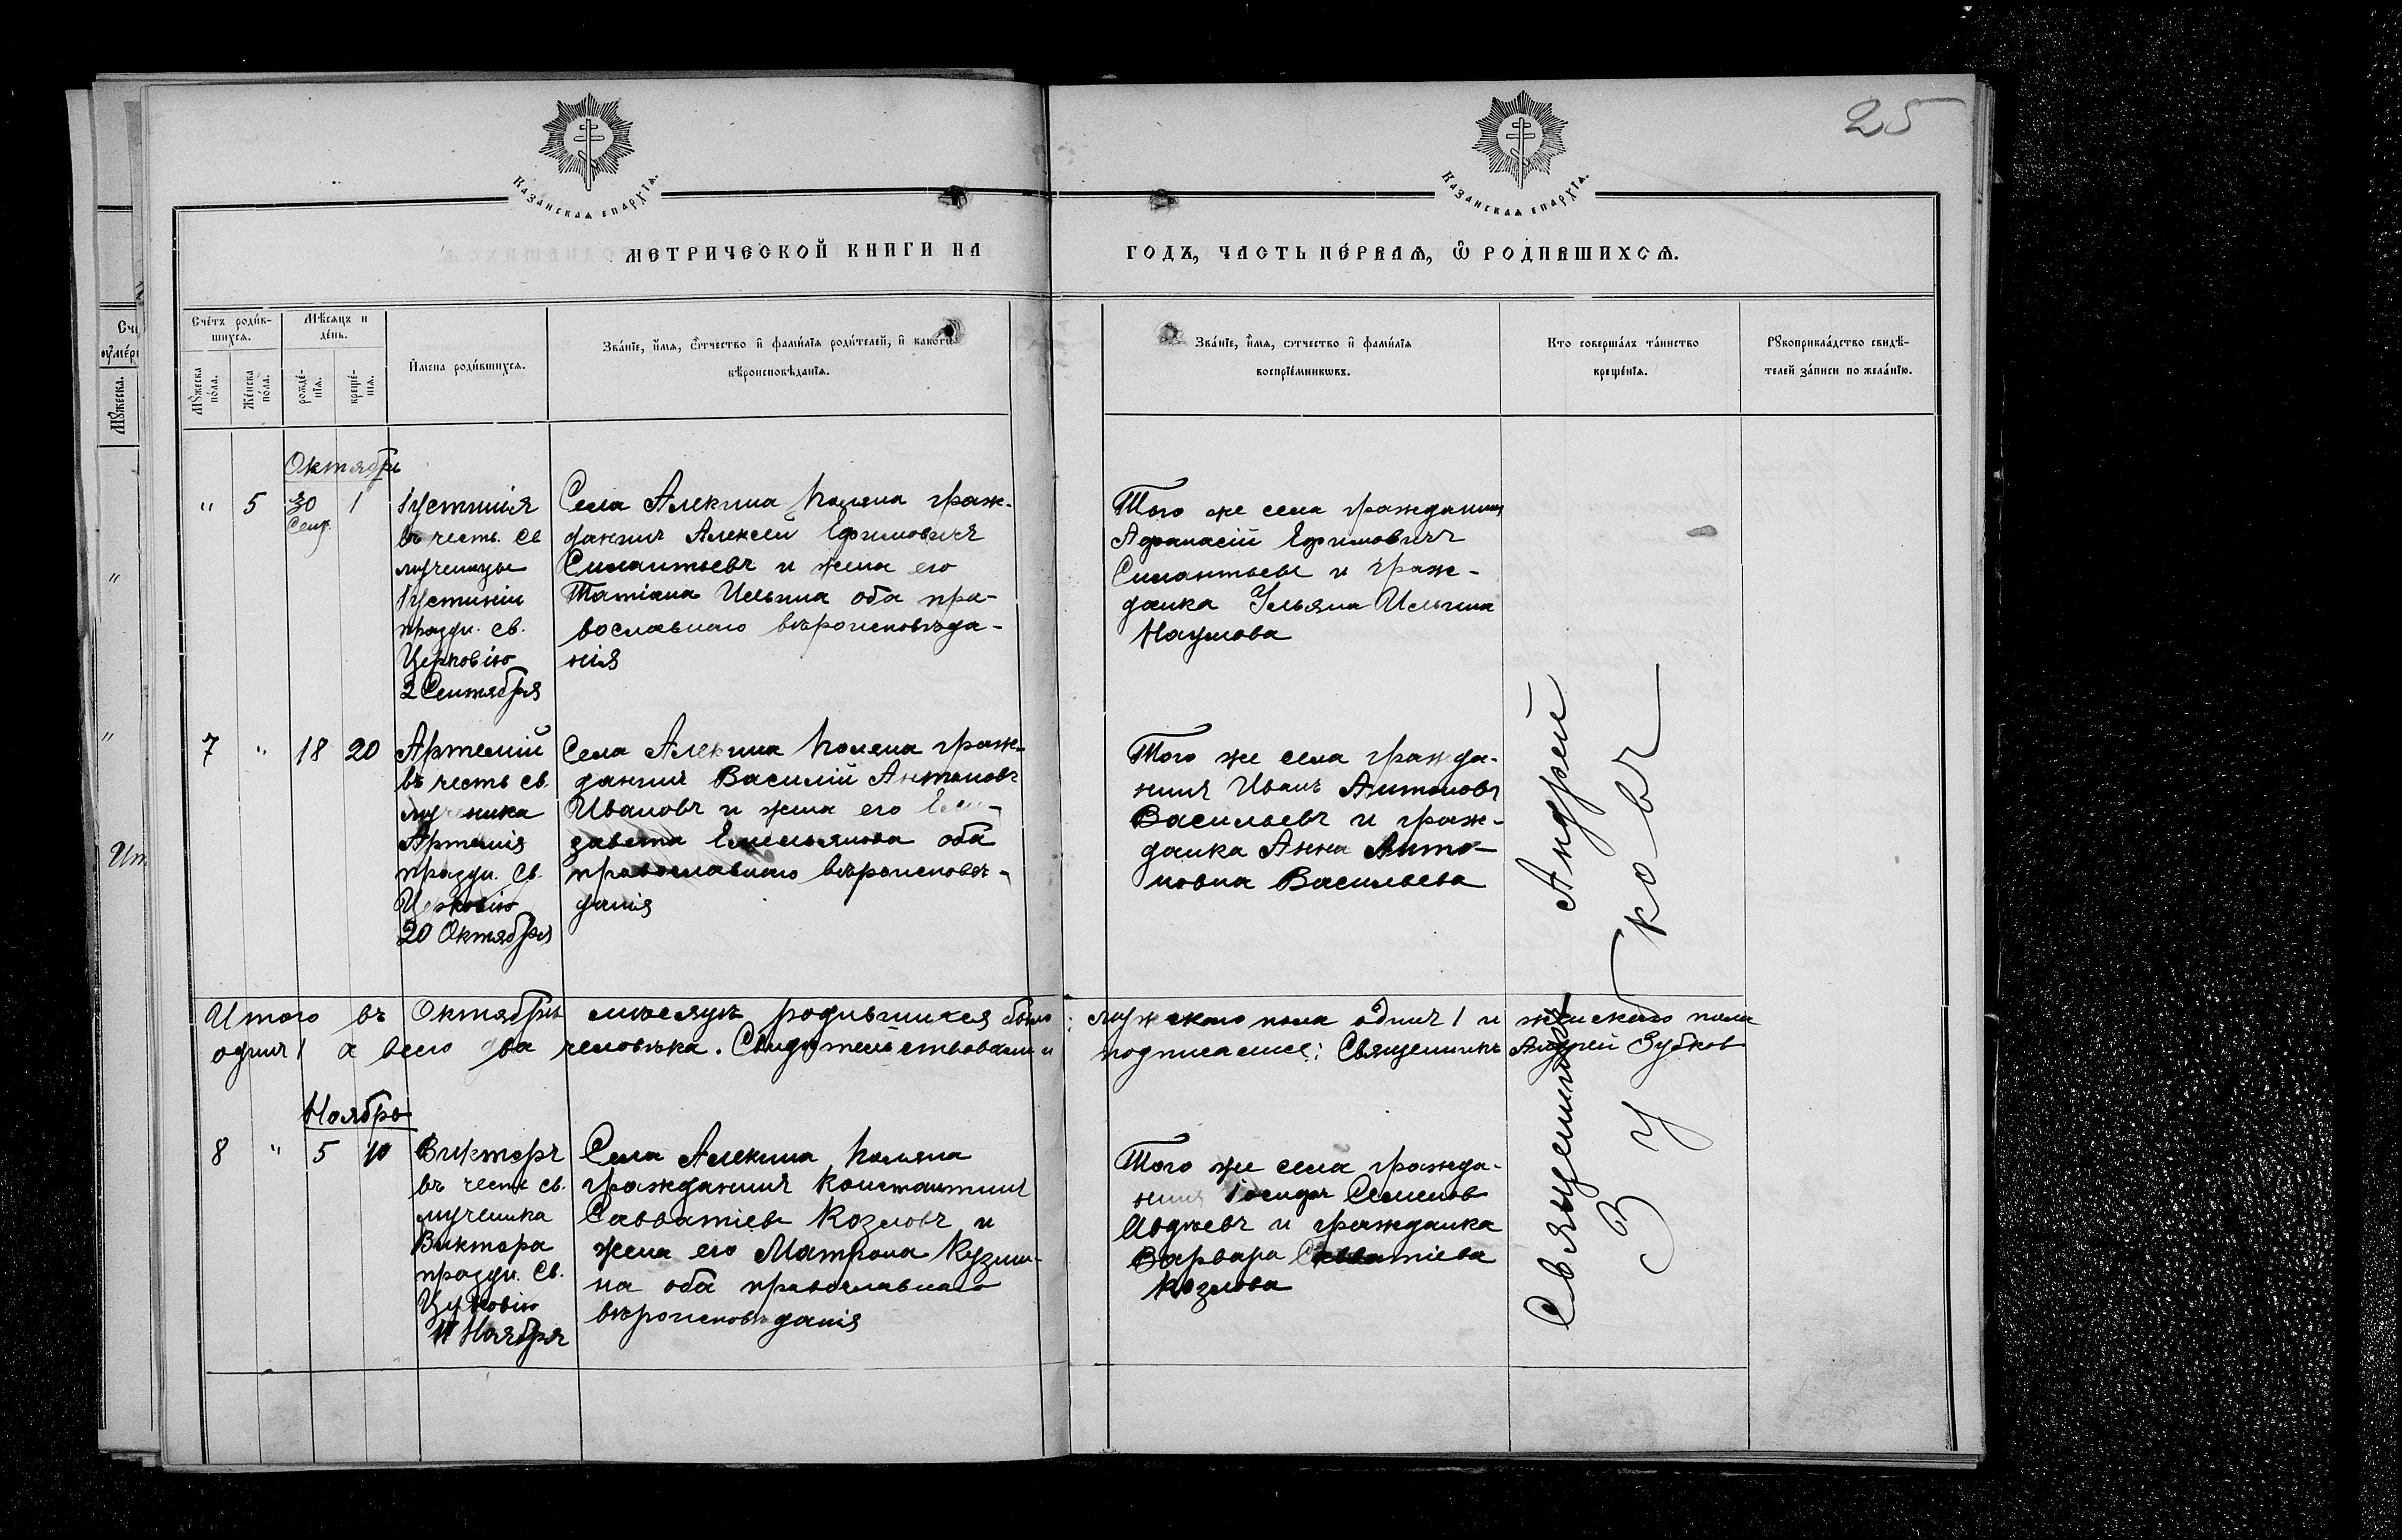 25
Казанская епархїа.
Казанская епархїа.
МЕТРИЧЕСКОЙ КНИГИ НА
ГОДЪ, ЧАСТЬ ПЕ́РВАѦ, Ѡ҆ РОДИ́ВШИХСѦ.
Счётъ роди́в-
шихсѧ.
Мѣ́сѧцъ и
де́нь.
Мꙋ́жеска по́ла.
Же́нска по́ла.
рожде́-
нїѧ.
креще́-
нїѧ.
И҆мена̀ роди́вшихсѧ.
Зва́нїе, и҆́мѧ, ѻ҆́тчество и҆ фами́лїѧ роди́телей, и҆ какогѡ
вѣроисповѣ́данїѧ.
Зва́нїе, и҆́мѧ, ѻтчество и҆ фами́лїѧ
воспрїе́мникѡвъ.
Кто соверша́лъ та́инство
креще́нїѧ.
Рꙋкоприкла́дство свидѣ́-
телей за́писи по жела́нїю.
Октябрь
" 5 30 Сент. 1
Іустинія
въ честь св
мученицы
Іустиніи
праздн. св.
Церковію
2 Сентября
Села Алекина Поляна граж-
данинъ Алексей Ефимовичъ
Силантьевъ и жена его
Татіана Ильина оба пра-
вославнаго вѣроисповѣда-
нія
Того же села гражданинъ
Афанасій Ефимовичъ
Силантьевъ и граж-
данка Ульяна Ильина
Наумова
7 " 18 20
Артемій
въ честь св.
мученика
Артемія
праздн. св.
Церковію
20 Октября
Села Алекина Поляна граж-
данинъ Василій Антоновъ
Ивановъ и жена его Ели-
завета Емельянова оба
православнаго вѣроисповѣ-
данія
Того же села гражда-
нинъ Иванъ Антоновъ
Васильевъ и граж-
данка Анна Анто-
новна Васильева
Итого въ Октябрѣ месяцѣ родившихся было: мужскаго пола одинъ 1 и женскаго пола
одинъ 1 а всего два человѣка. Свидетельствовали и подписалис: Священникъ Андрей Зубков
Ноябрь
8 " 5 10
Викторъ
въ честь св.
мученика
Виктора
праздн. св.
Церковію
11 Ноября
Села Алекина Поляна
гражданинъ Константинъ
Савватіевъ Козловъ и
жена его Матрона Кузми-
на оба православнаго
вѣроисповѣданія
Того же села гражда-
нинъ Іосифъ Семенов
Авдѣевъ и гражданка
Варвара Савватіева
Козлова
Священникъ Андрей
Зубковъ